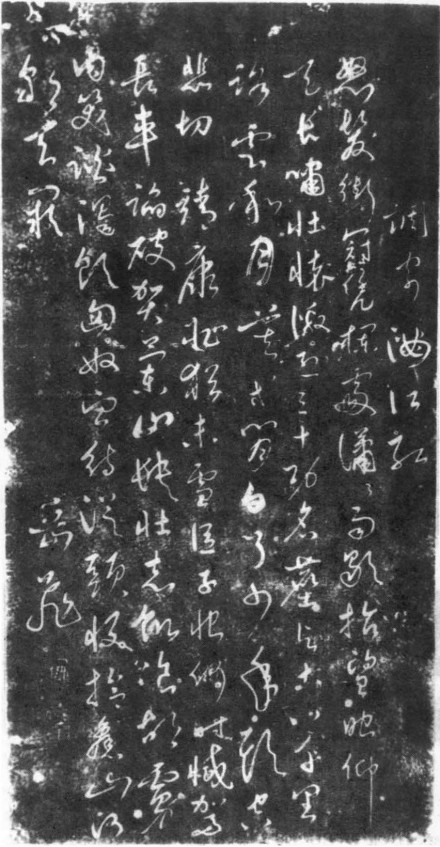 調寄滿江紅
怒髮衝冠憑欄處瀟々雨歇抬望眼仰
天長嘯壯懷激烈三十功名塵與土八千里
路雲和月莫等閒白了少年頭空
悲切 靖康恥猶未雪臣子恨何時滅駕
長車踏破賀蘭山缺壯志飢餐胡虜
肉笑談渴飲匈奴血待從頭收拾舊山河
朝天闕
岳飛